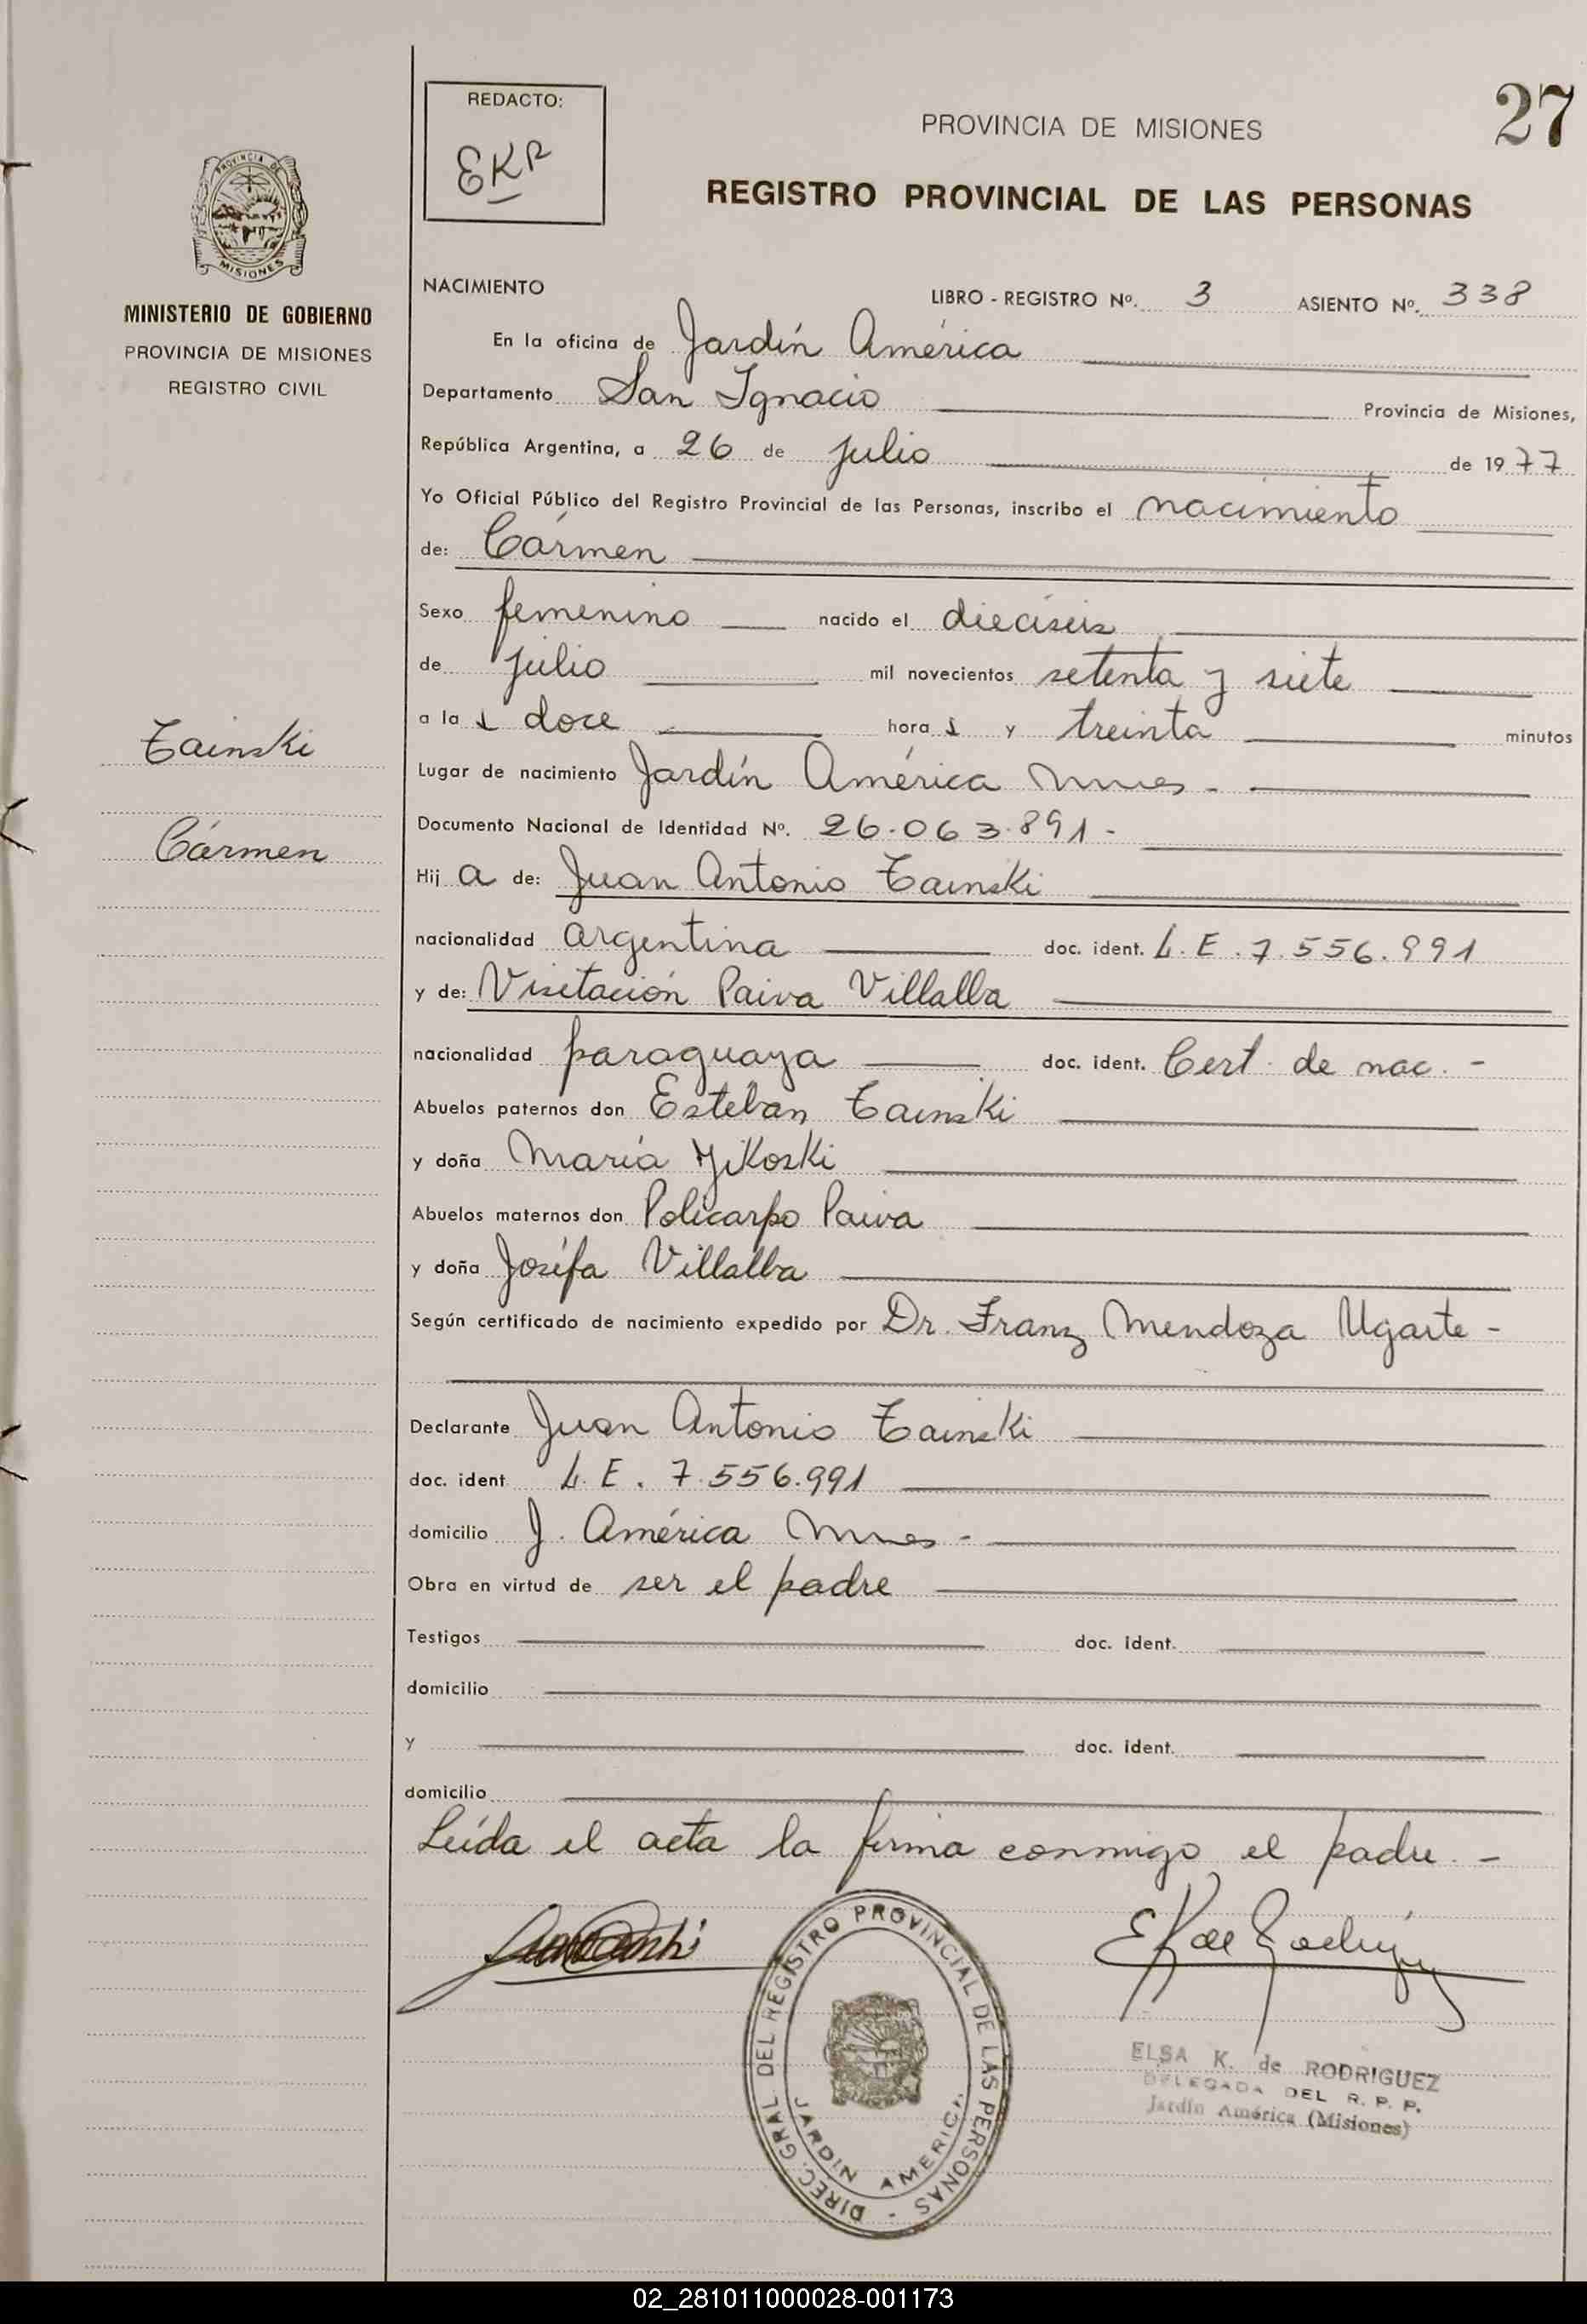 REDACTO:
EKR
PROVINCIA DE MISIONES
27
REGISTRO PROVINCIAL DE LAS PERSONAS
PROVINCIA DE
MISIONES
MINISTERIO DE GOBIERNO
PROVINCIA DE MISIONES
REGISTRO CIVIL
NACIMIENTO LIBRO - REGISTRO Nº. 3 ASIENTO Nº. 338
En la oficina de Jardín América
Departamento San Ignacio Provincia de Misiones,
República Argentina, a 26 de julio de 1977
Yo Oficial Público del Registro Provincial de las Personas, inscribo el nacimiento
de: Cármen
Sexo femenino nacido el dieciseis
de julio mil novecientos setenta y siete
a la s doce hora s y treinta minutos
Tainski
Lugar de nacimiento Jardín América Mnes -
Documento Nacional de Identidad Nº. 26.063.891 -
Cármen
Hij a de: Juan Antonio Tainski
nacionalidad argentina doc. ident. L.E. 7.556.991
y de: Visitación Paiva Villalba
nacionalidad paraguaya doc. ident. Cert. de nac. -
Abuelos paternos don Esteban Tainski
y doña María
Abuelos maternos don Policarpo Paiva
y doña Josefa Villalba
Según certificado de nacimiento expedido por Dr. Franz Mendoza Ugarte -
Declarante Juan Antonio Tainski
doc. ident. L.E. 7.556.991
domicilio J. América Mnes -
Obra en virtud de ser el padre
Testigos doc. ident.
domicilio
y doc. ident.
domicilio
Leída el acta la firma conmigo el padre. -
EK de Rodríguez
DIREC. GRAL. DEL REGISTRO PROVINCIAL DE LAS PERSONAS -
JARDIN AMERICA
ELSA K. de RODRIGUEZ
DELEGADA DEL R. P. P.
Jardín América (Misiones)
02_281011000028-001173